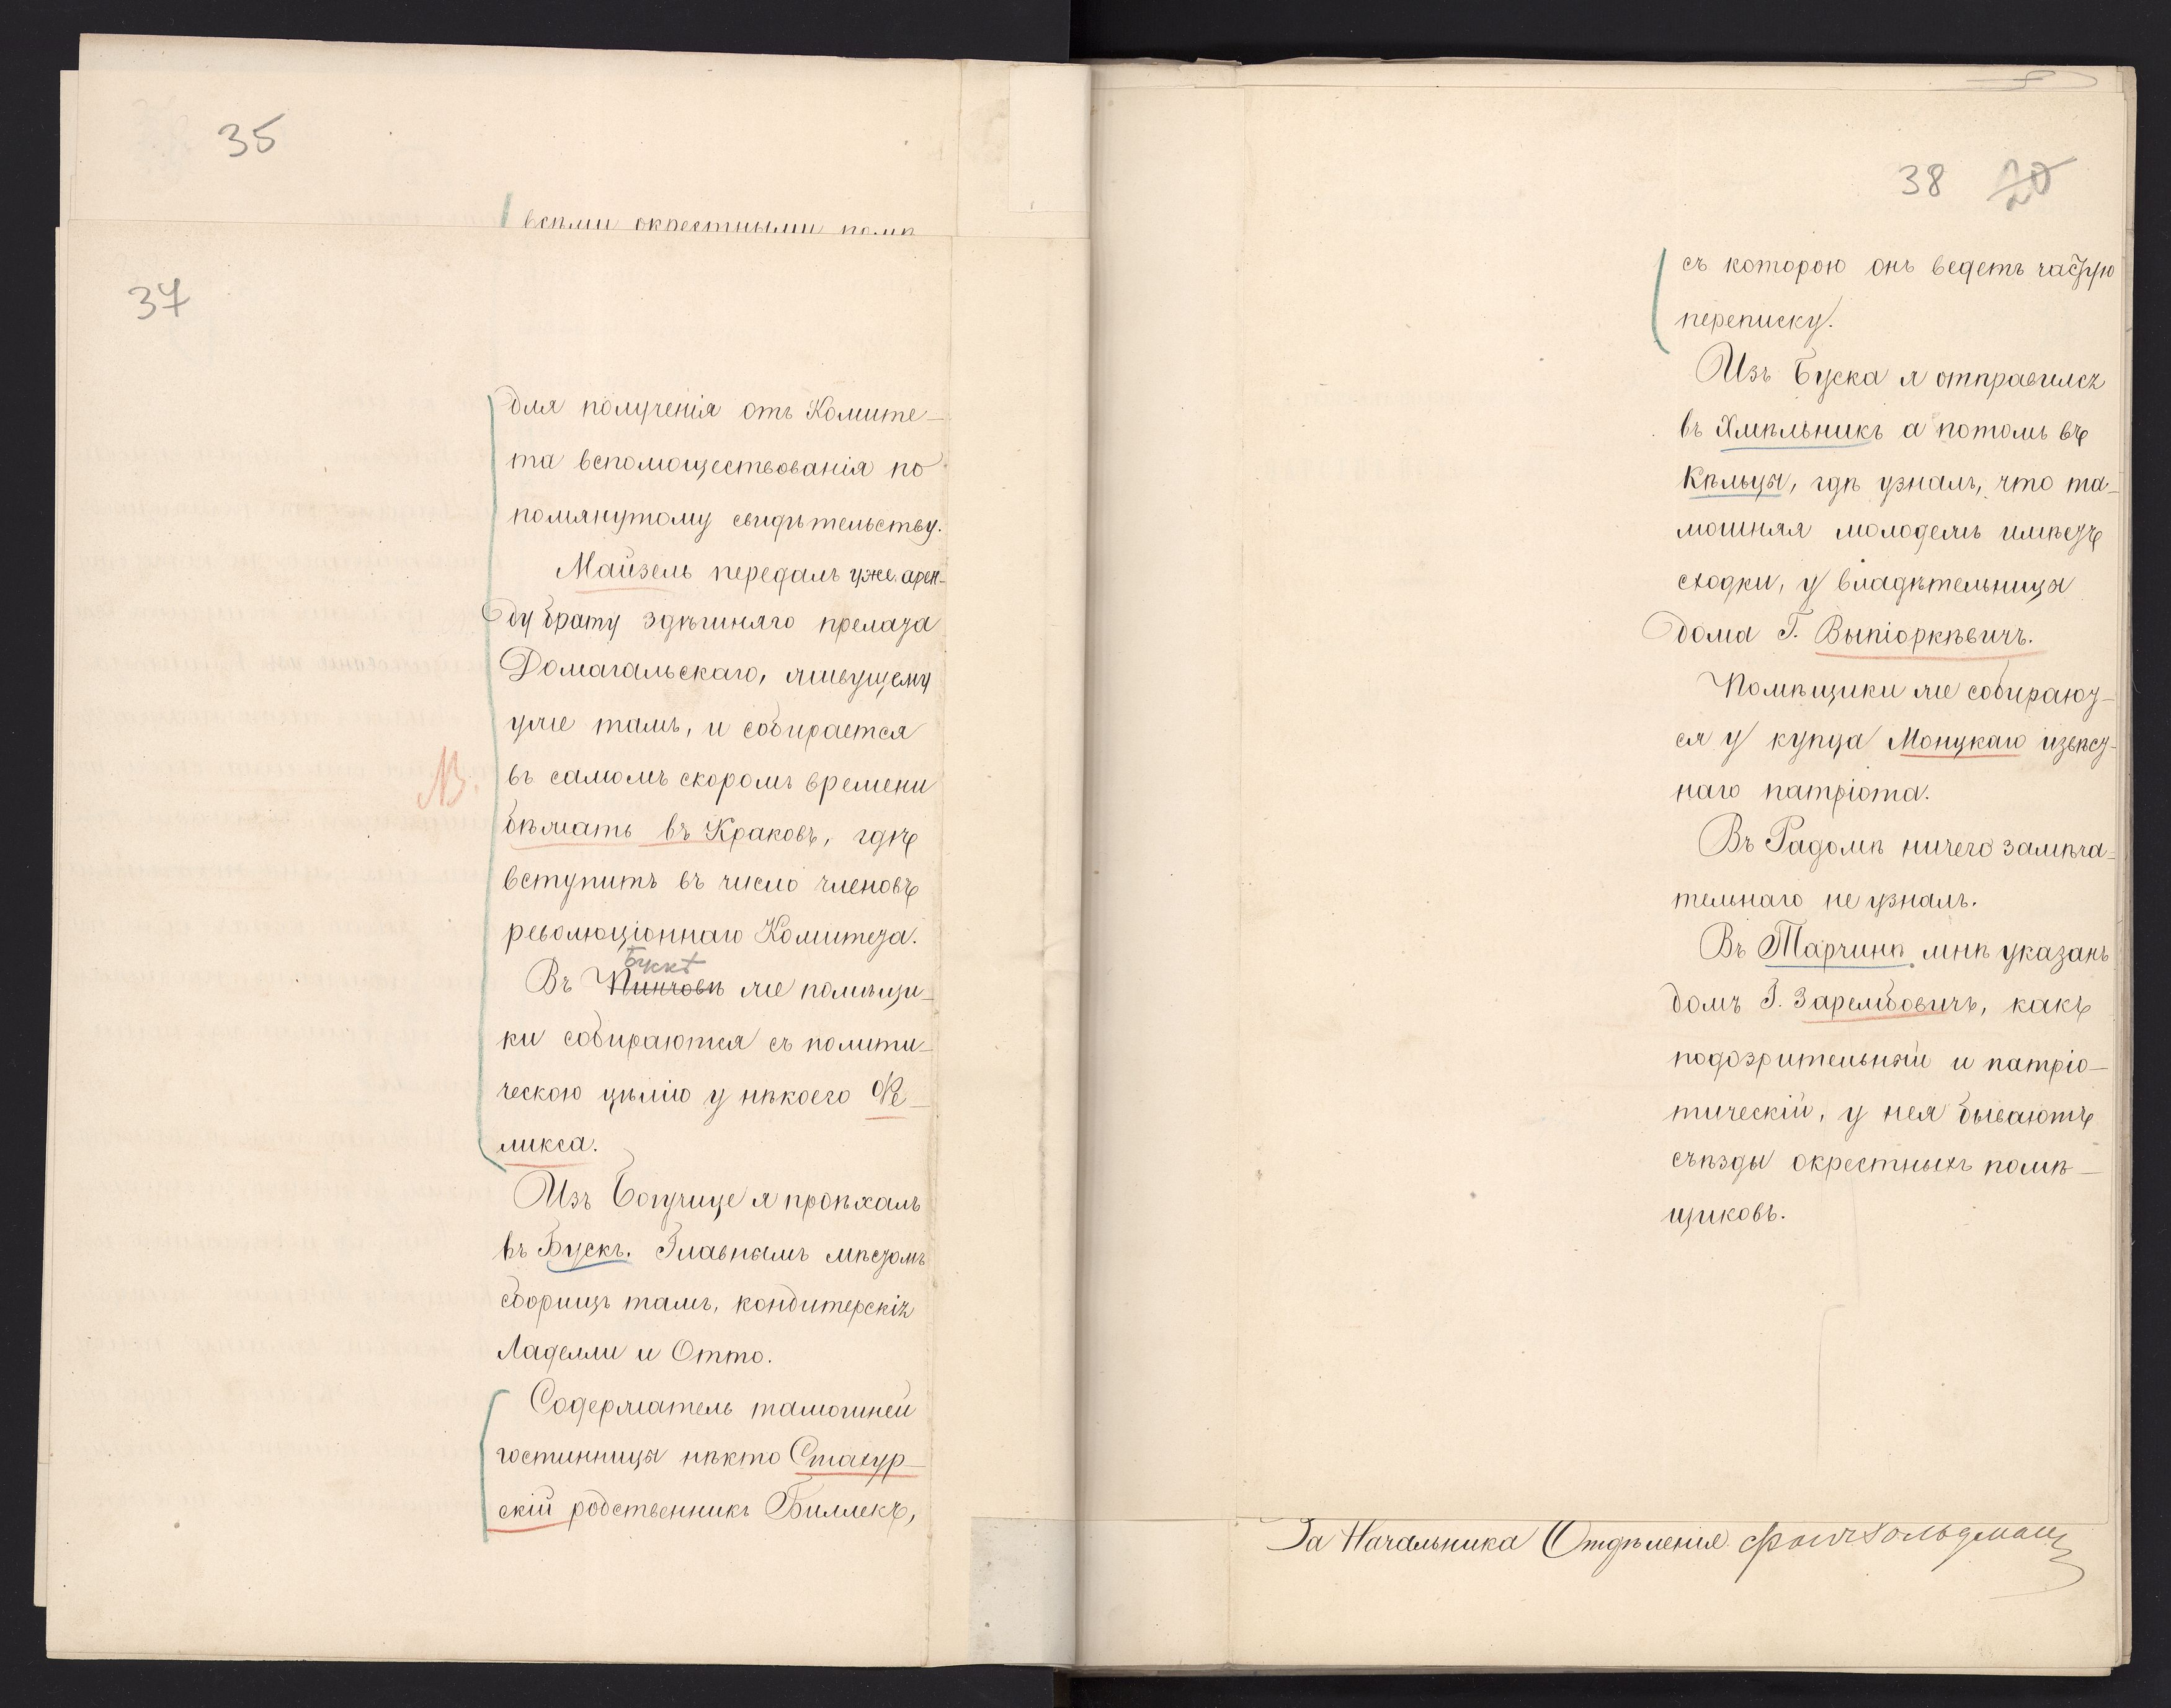 35
всѣми окрестными помѣ
37
для полученія отъ Комите-
та вспомоществованія по
помянутому свидѣтельству.
Майзель передалъ уже арен-
ду брату здѣшняго прелата
Домагальскаго, живущему
уже тамъ, и собирается
въ самомъ скоромъ времени
NB.
бѣжать въ Краковъ, гдѣ
вступитъ въ число членовъ
революціоннаго Комитета.
Бускѣ
Въ Пинчовѣ же помѣщи-
ки собираются съ полити-
ческою цѣлію у нѣкоего Фе-
ликса.
Изъ Богучице я проѣхалъ
въ Бускъ. Главнымъ мѣстомъ
сборищъ тамъ, кондитерскія
Ладелли и Отто.
Содержатель тамошней
гостинницы нѣкто Стахур-
скій родственникъ Биллекъ,
38 20
съ которою онъ ведетъ частую
переписку.
Изъ Буска я отправился
въ Хмѣльникъ а потомъ въ
Кѣльцы, гдѣ узналъ, что та-
мошняя молодежь имѣетъ
сходки, у владѣтельницы
дома Г. Выпіоркѣвичъ.
Помѣщики же собирают-
ся у купца Моцкаго извѣст-
наго патріота.
Въ Радомѣ ничего замѣча-
тельнаго не узналъ.
Въ Тарчинѣ мнѣ указанъ
домъ Г. Зарембовичъ, какъ
подозрительный и патріо-
тическій, у нея бываютъ
съѣзды окрестныхъ помѣ-
щиковъ.
За Начальника Отдѣленія